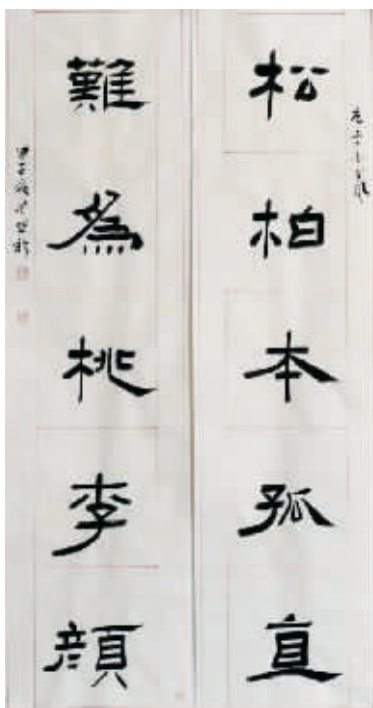 松柏本孤直
難為桃李顔